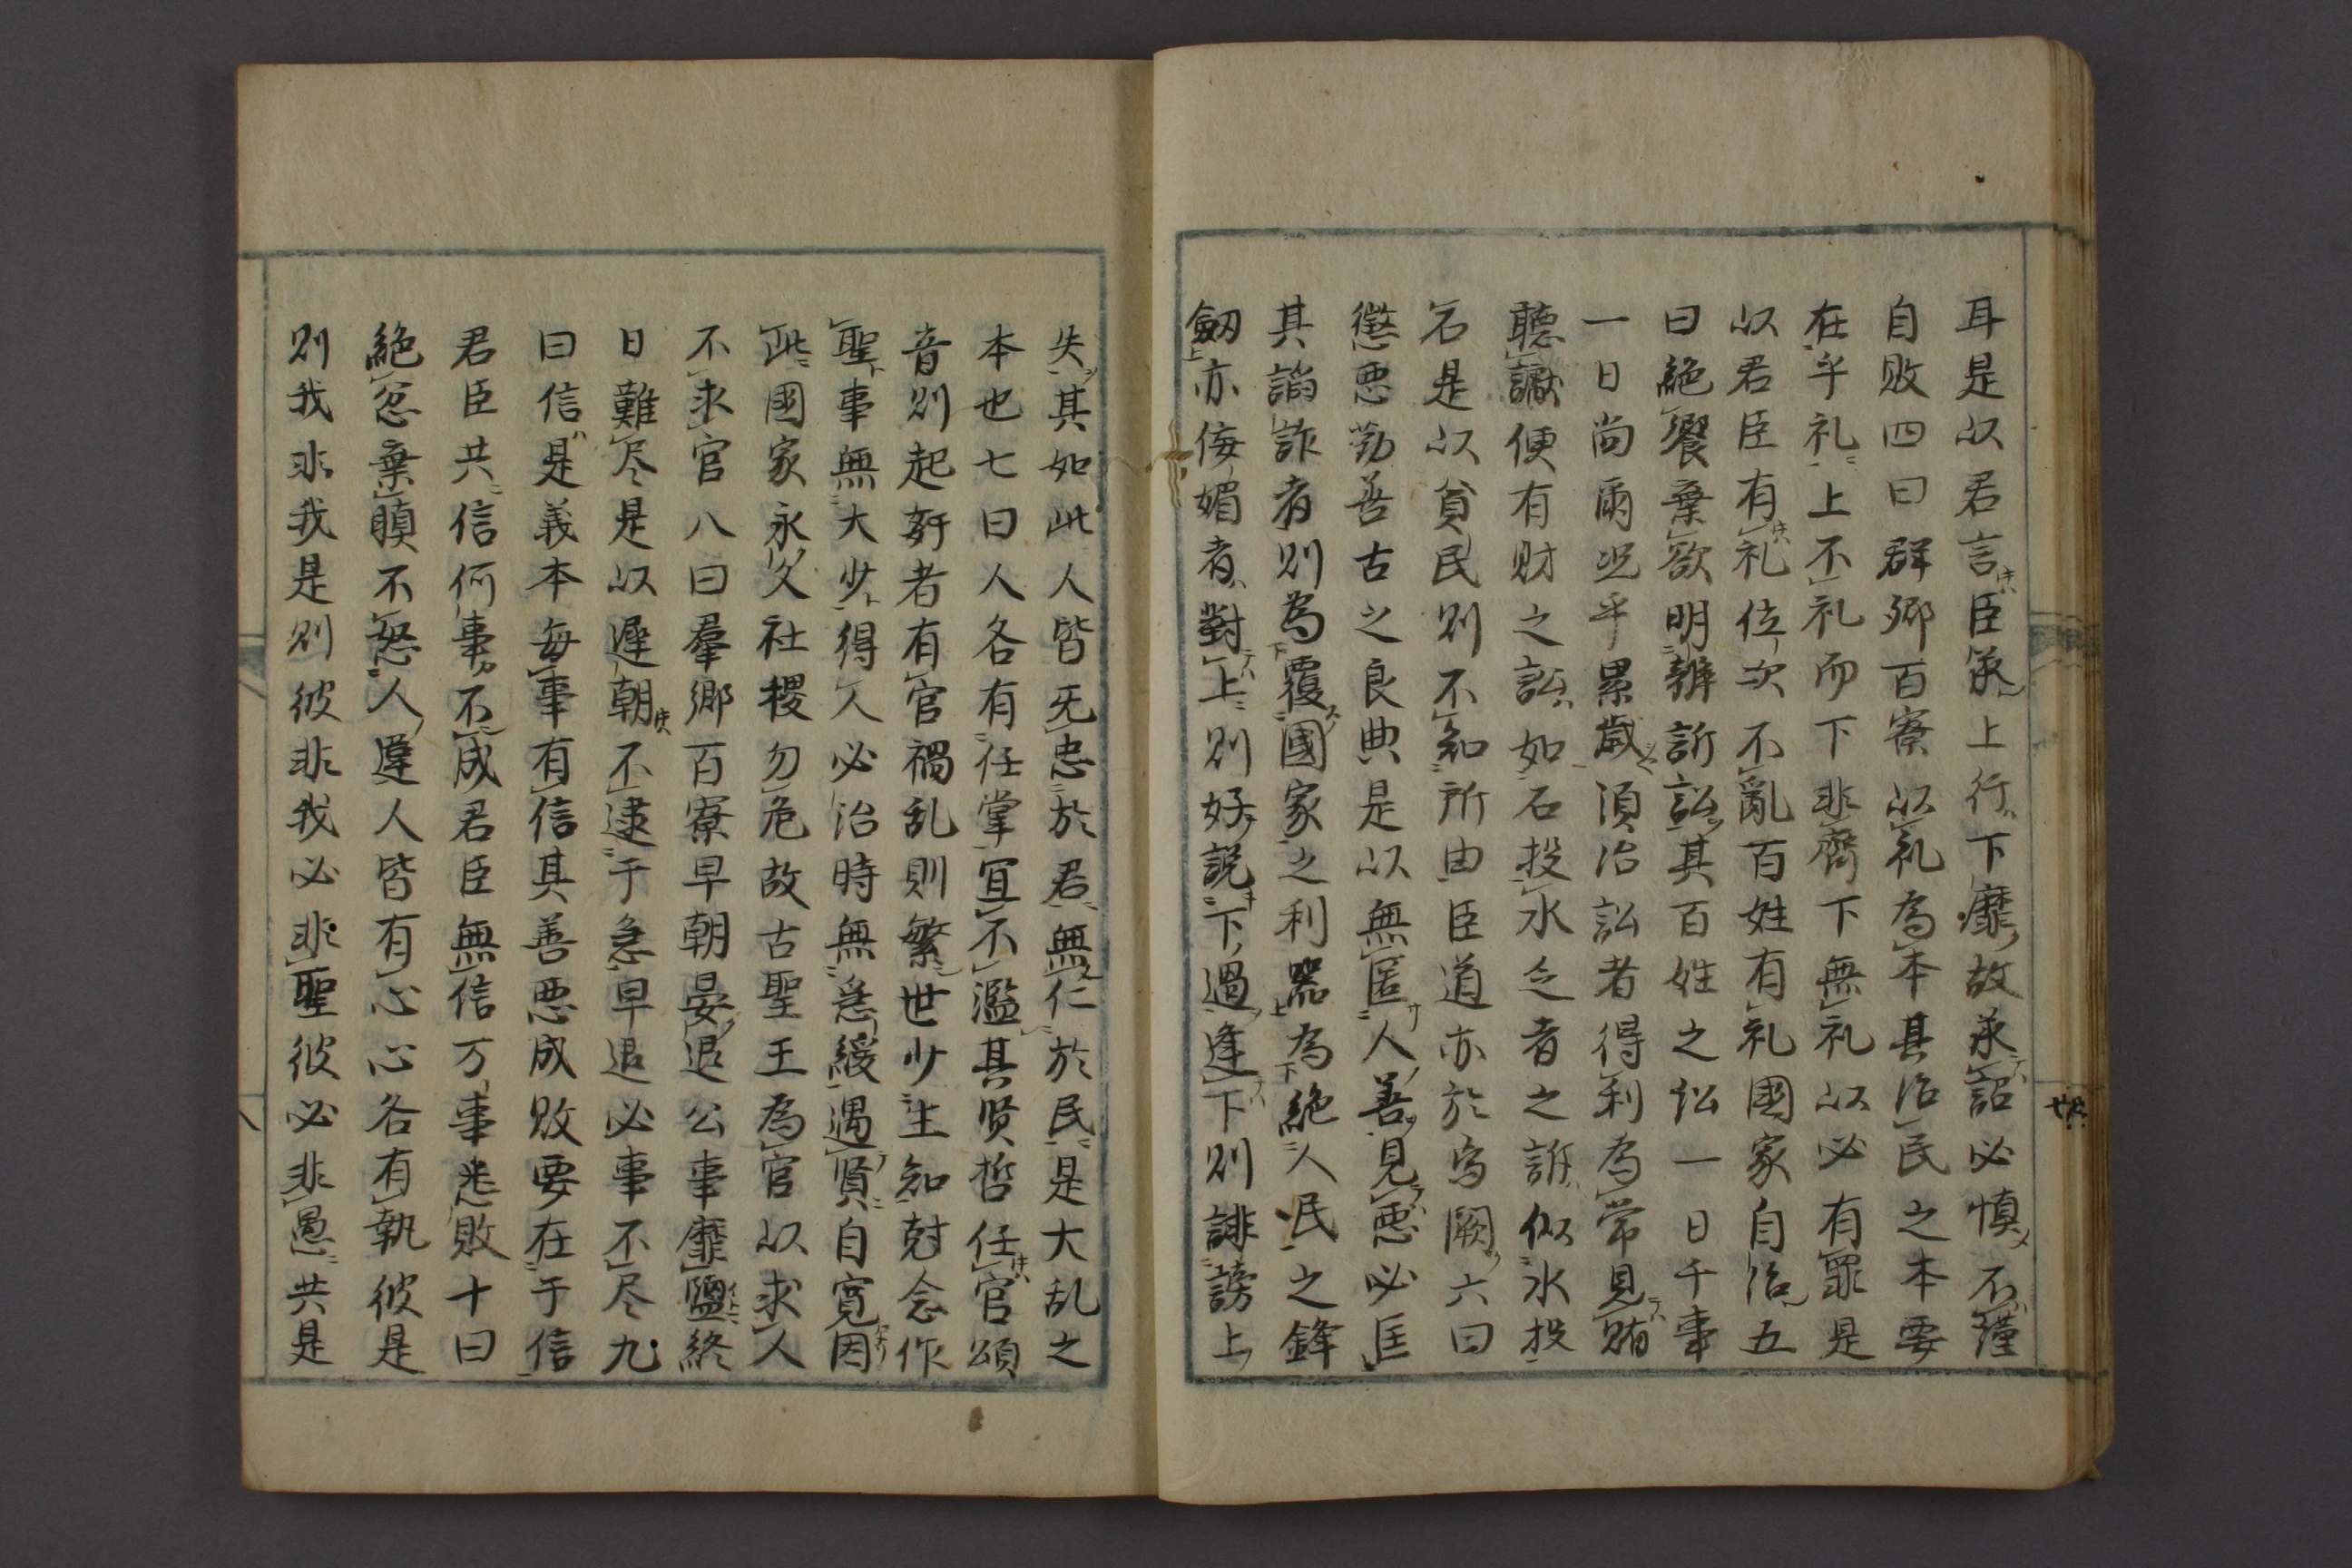 耳是以君言臣承上行下靡故承詔必慎不謹
自敗四曰群卿百寮以礼為本其治民之本要
在乎礼上不礼而下非齊下無礼以必有罪是
以君臣有礼位次不亂百姓有礼國家自治五
曰絶饗棄欲明辨訴訟其百姓之訟一日千事
一日尚爾况乎累歳須治訟者得利為常見賄
聴讞便有財之訟如石投水乏者之訴似水投
石是以貧民則不知所由臣道亦於焉闕六曰
懲悪勧善古之良典是以無匿人善見悪必匡
其諂詐者則為覆國家之利器為絶人民之鋒
劔亦侫媚者對上則好説下過逢下則誹謗上
失其如此人皆无忠於君無仁於民是大乱之
本也七曰人各有任掌宜不濫其賢哲任官頌
音則起姧者有官禍乱則繁世少生知尅念作
聖事無大少得人必治時無急緩遇賢自寛因
此國家永久社稷勿危故古聖王為官以求人
不求官八曰羣卿百寮早朝晏退公事靡盬終
日難尽是以遅朝不逮于急早退必事不尽九
曰信是義本毎事有信其善悪成敗要在于信
君臣共信何事不成君臣無信万事悉敗十曰
絶忿棄瞋不怒人違人皆有心心各有執彼是
則我非我是則彼非我必非聖彼必非愚共是
八